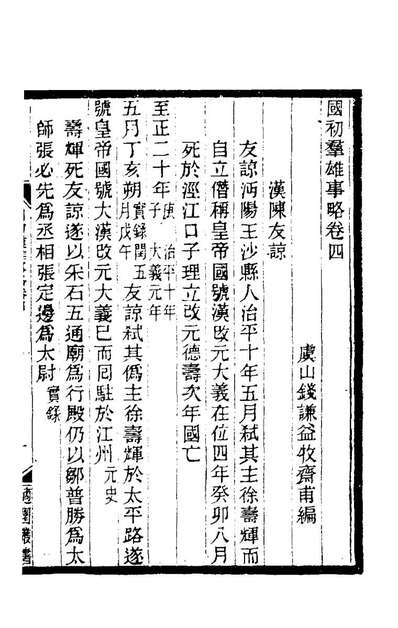 國初羣雄事略卷四
虞山錢謙益牧齋甫編
漢陳友諒
友諒沔陽玉沙縣人治平十年五月弑其主徐壽輝而
自立僭稱皇帝國號漢改元大義在位四年癸卯八月
死於涇江口子理立改元德壽次年國亡
至正二十年庚子 治平十年 大義元年
五月丁亥朔實錄閏五月戊午友諒弑其僞主徐壽輝於太平路遂
號皇帝國號大漢改元大義已而囘駐於江州元史
壽輝死友諒遂以采石五通廟爲行殿仍以鄒普勝爲太
師張必先爲丞相張定邊爲太尉實錄
適園叢書